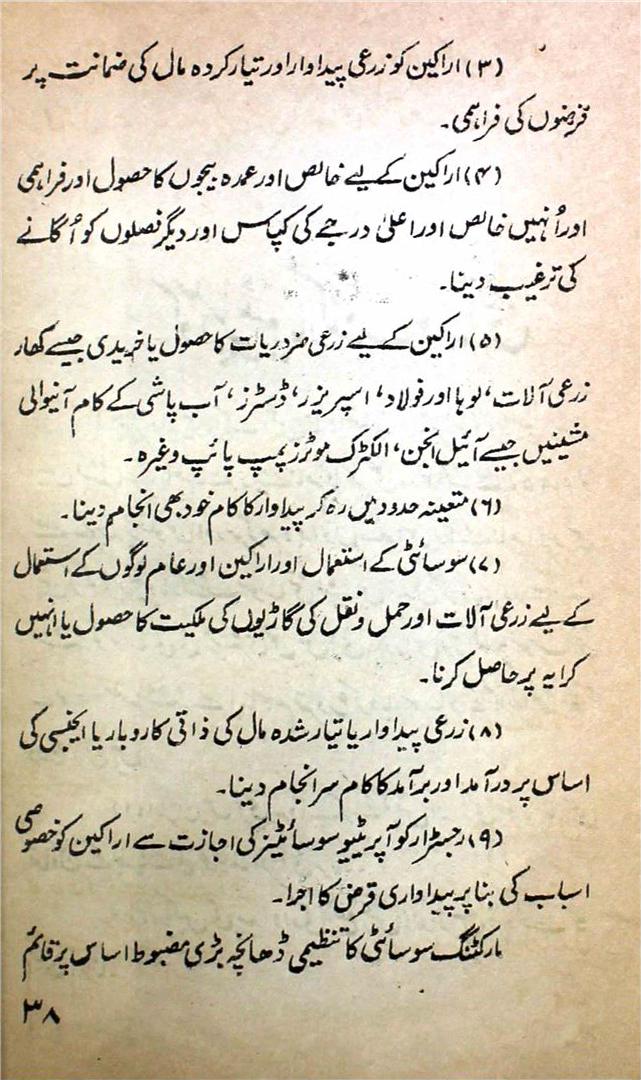 (۳) اراکین کو زرعی پیداوار اور تیار کردہ مال کی ضمانت پر
قرضوں کی فراہمی۔
(۴) اراکین کے لیے خالص اور عمدہ بیجوں کا حصول اور فراہمی
اور اُنہیں خالص اور اعلیٰ درجے کی کپاس اور دیگر فصلوں کو اُگانے
کی ترغیب دینا۔
(۵) اراکین کے لیے زرعی ضروریات کا حصول یا خریدی جیسے کھاد
زرعی آلات، لوہا اور فولاد، اسپریزر، ڈسٹرز، آب پاشی کے کام آنیوالی
مشینیں جیسے آئیل انجن، الکٹرک موٹرز پمپ پائپ وغیرہ۔
(۶) متعینہ حدود میں رہ کر پیداوار کا کام خود بھی انجام دینا۔
(۷) سوسائٹی کے استعمال اور اراکین اور عام لوگوں کے استعمال
کے لیے زرعی آلات اور حمل و نقل کی گاڑیوں کی ملکیت کا حصول یا انہیں
کرایہ پر حاصل کرنا۔
(۸) زرعی پیداوار یا تیار شدہ مال کی ذاتی کاروبار یا ایجنسی کی
اساس پر درآمد اور برآمد کا کام سرانجام دینا۔
(۹) رجسٹرار کوآپریٹیو سوسائٹیز کی اجازت سے اراکین کو خصوصی
اسباب کی بنا پر پیداواری قرض کا اجرا۔
مارکٹنگ سوسائٹی کا تنظیمی ڈھانچہ بڑی مضبوط اساس پر قائم
۳۸